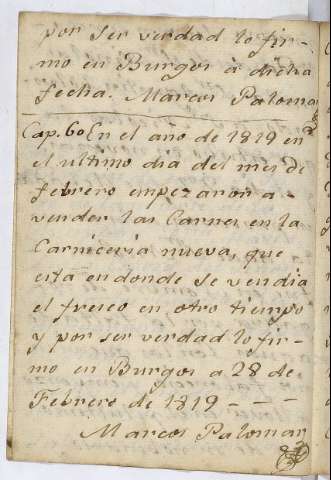 por ser verdad lo fir-
mo en Burgos a dicha
fecha. Marcos Palomar
Cap. 60 En el año de 1819 en
el ultimo dia del mes de
febrero empezaron a -
vender las Carnes en la
Carniceria nueva, que
esta en donde se vendia
el fresco en otro tiempo
y por ser verdad lo fir-
mo en Burgos a 28 de
Febrero de 1819 - - -
Marcos Palomar